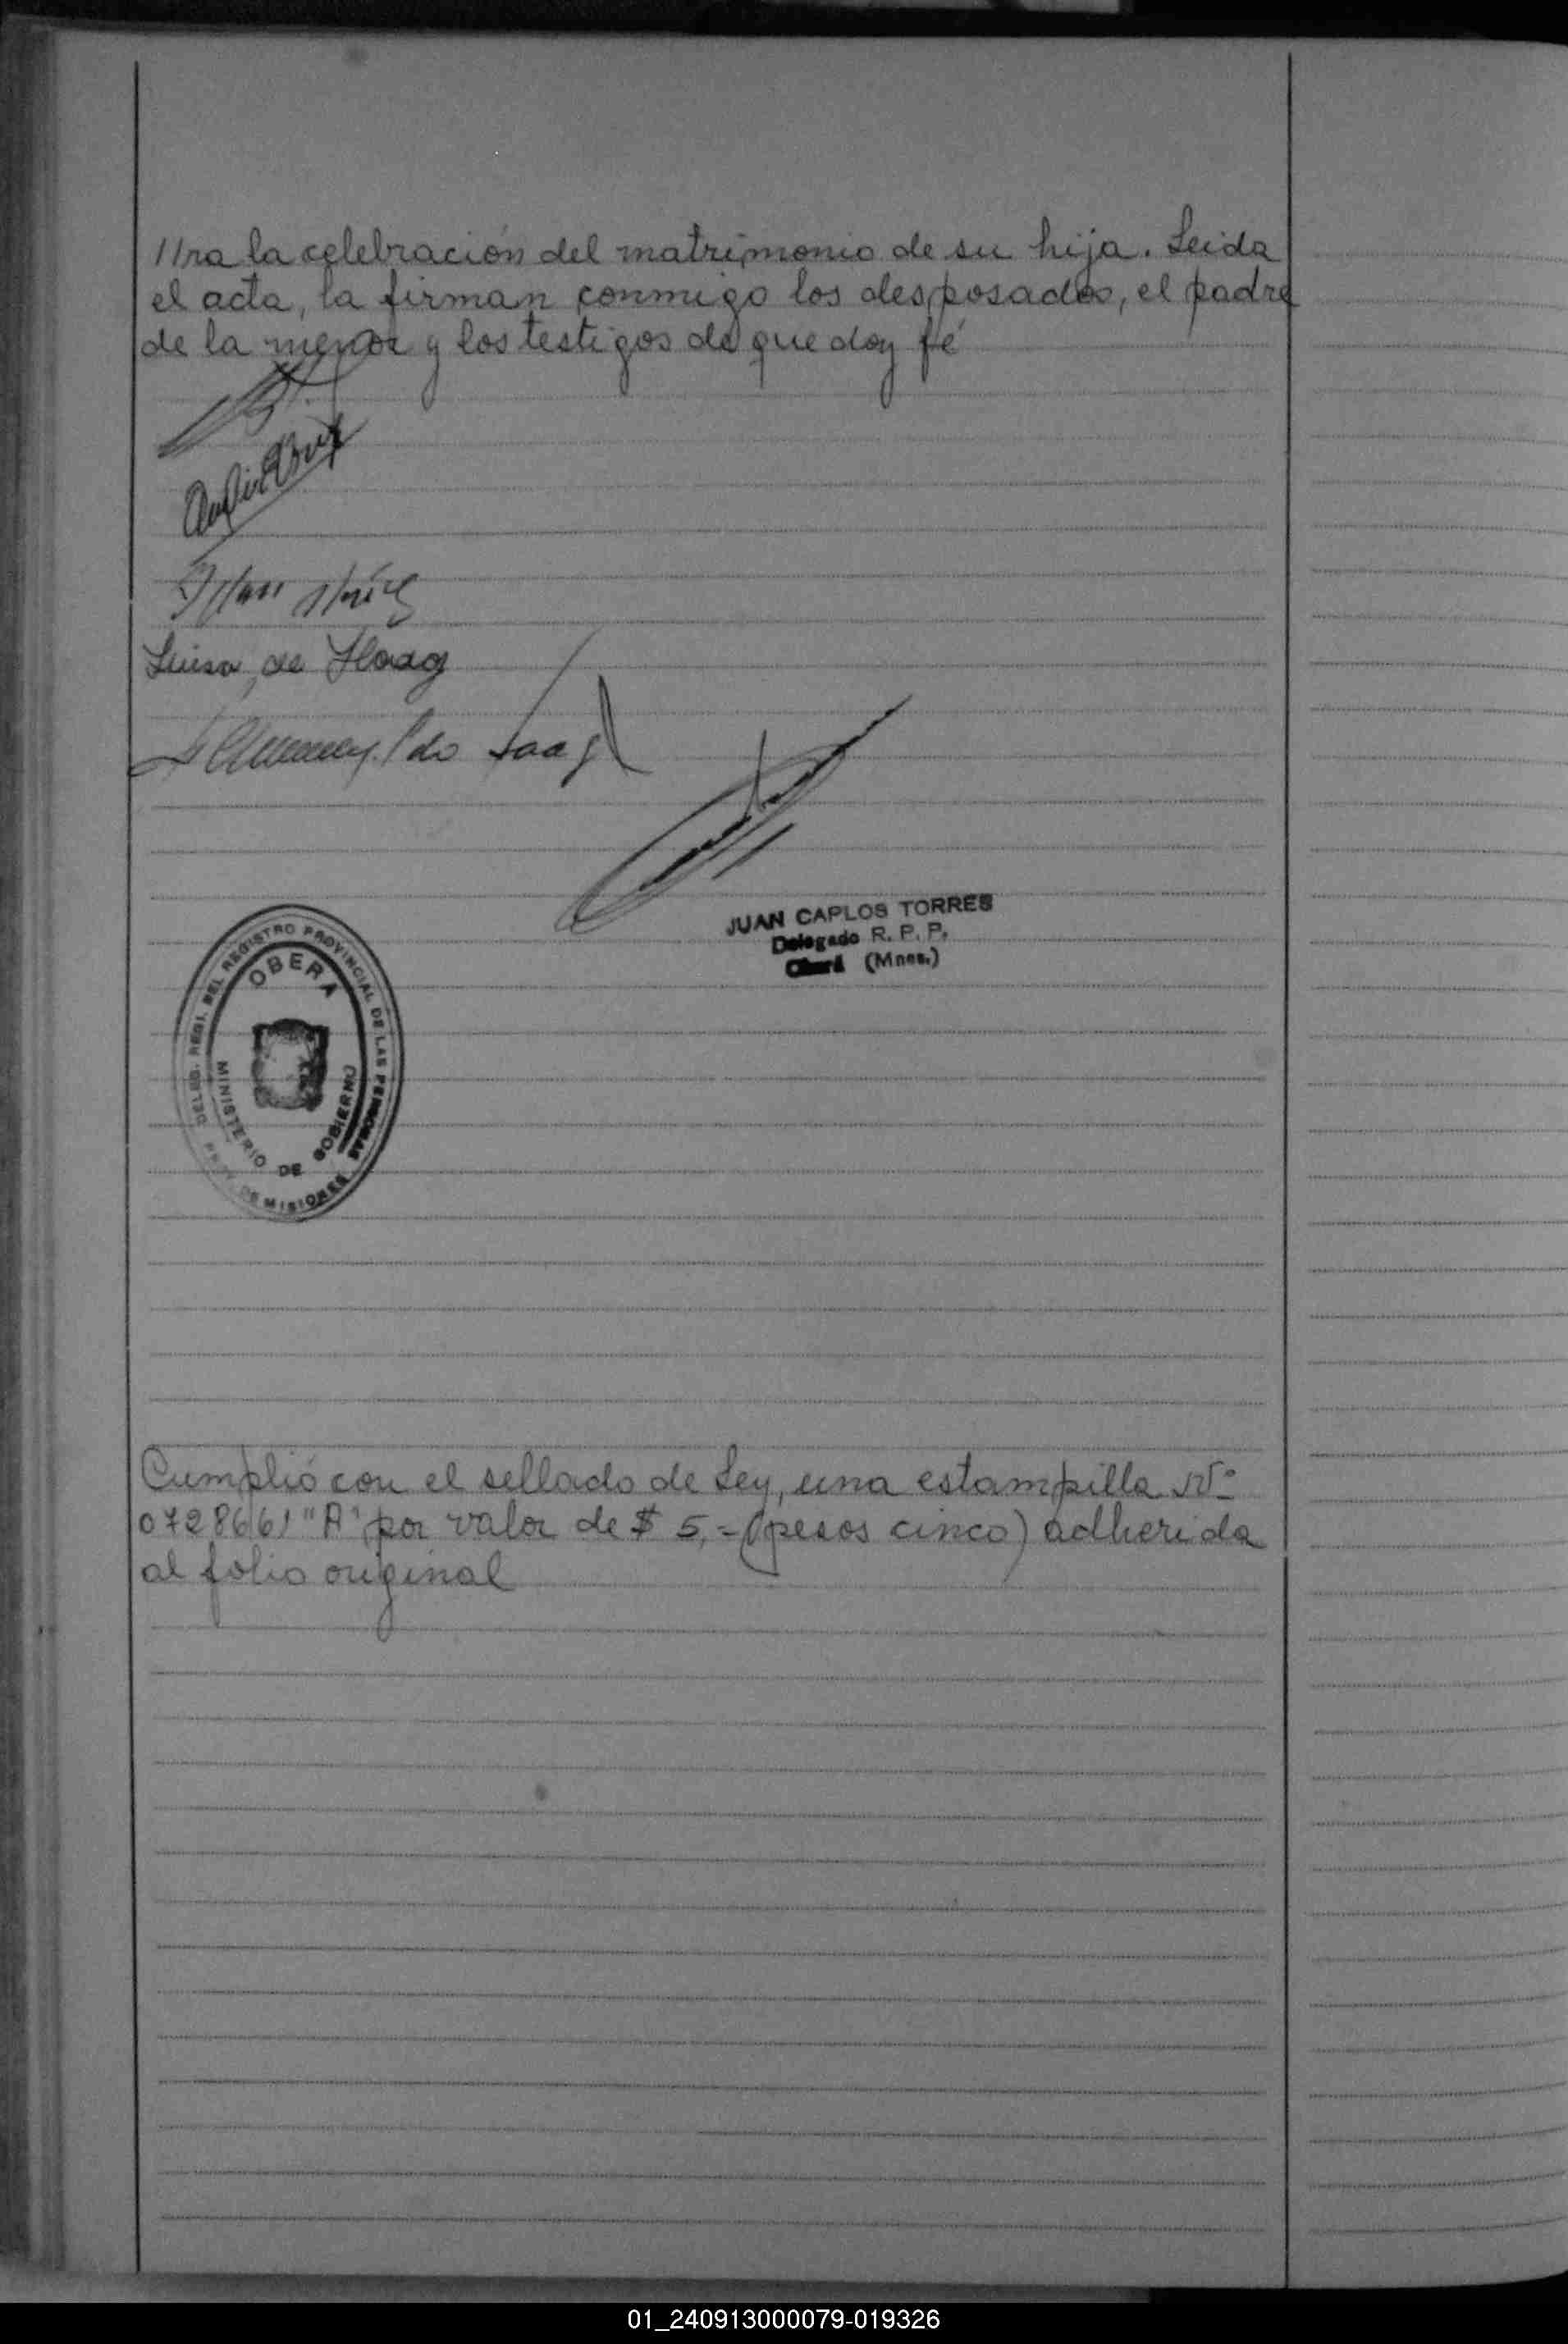 //ra la celebración del matrimonio de su hija. Leida
el acta, la firman conmigo los desposados, el padre
de la menor y los testigos de que doy fé
Luisa de Haag
JUAN CARLOS TORRES
Delegado R. P. P.
Oberá (Mnes.)
DELEG. REGI. DEL REGISTRO PROVINCIAL DE LAS PERSONAS
OBERA
MINISTERIO DE GOBIERNO
DE MISIONES
Cumplió con el sellado de Ley, una estampilla Nº
0728661 "A" por valor de $ 5,- (pesos cinco) adherida
al folio original
01_240913000079-019326